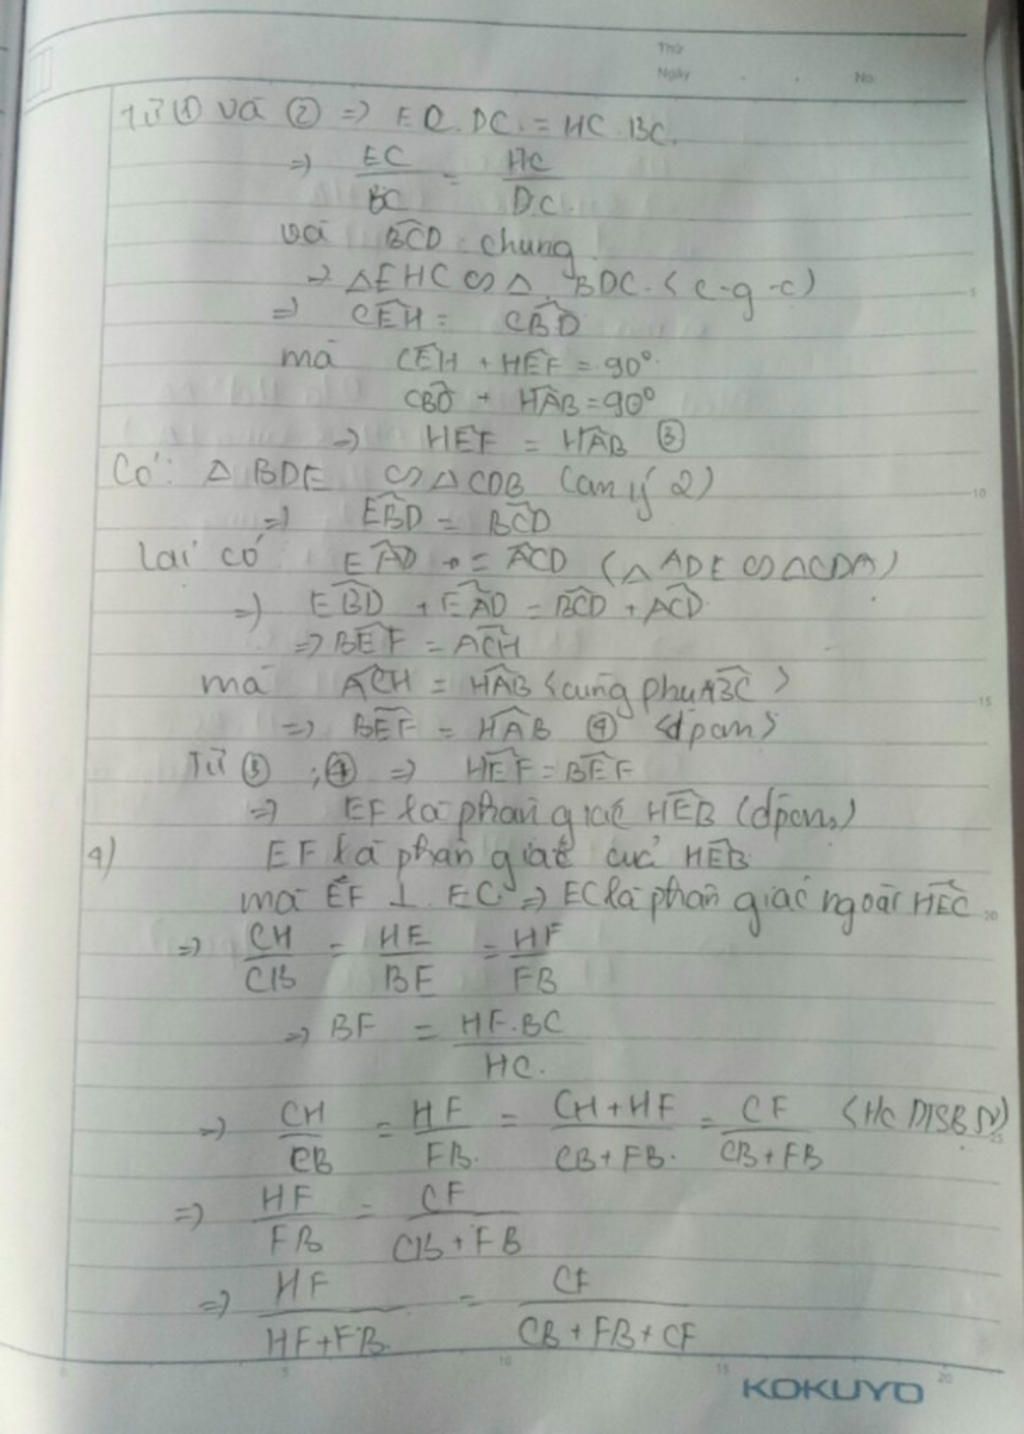 Thứ
Ngày . . No.
Từ ① và ② => EC.DC = HC.BC.
=> EC/BC = HC/DC.
và BCD̂ chung
=> △EHC ∽ △ BDC. (c-g-c)
=> CÊH = CB̂D
mà CÊH + HÊF = 90°
CB̂D + HÂB = 90°
=> HÊF = HÂB ③
Có: △ BDE ∽ △CDB (cm ý 2)
=> EB̂D = BĈD
lại có EÂD = AĈD (△ ADE ∽ △CDA)
=> EB̂D + EÂD = BĈD + AĈD
=> BÊF = AĈH
mà AĈH = HÂB (cùng phụ AB̂C)
=> BÊF = HÂB ④ (đpcm)
Từ ③ ; ④ => HÊF = BÊF
=> EF là phân giác HÊB (đpcm)
4) EF là phân giác của HÊB
mà EF ⊥ EC => EC là phân giác ngoài HÊC
=> CH/CB = HE/BE = HF/FB
=> BF = HF.BC/HC.
=> CH/CB = HF/FB. = CH+HF/CB+FB. = CF/CB+FB (t/c DTSBN)
=> HF/FB = CF/CB+FB
=> HF/HF+FB. = CF/CB+FB+CF
KOKUYO